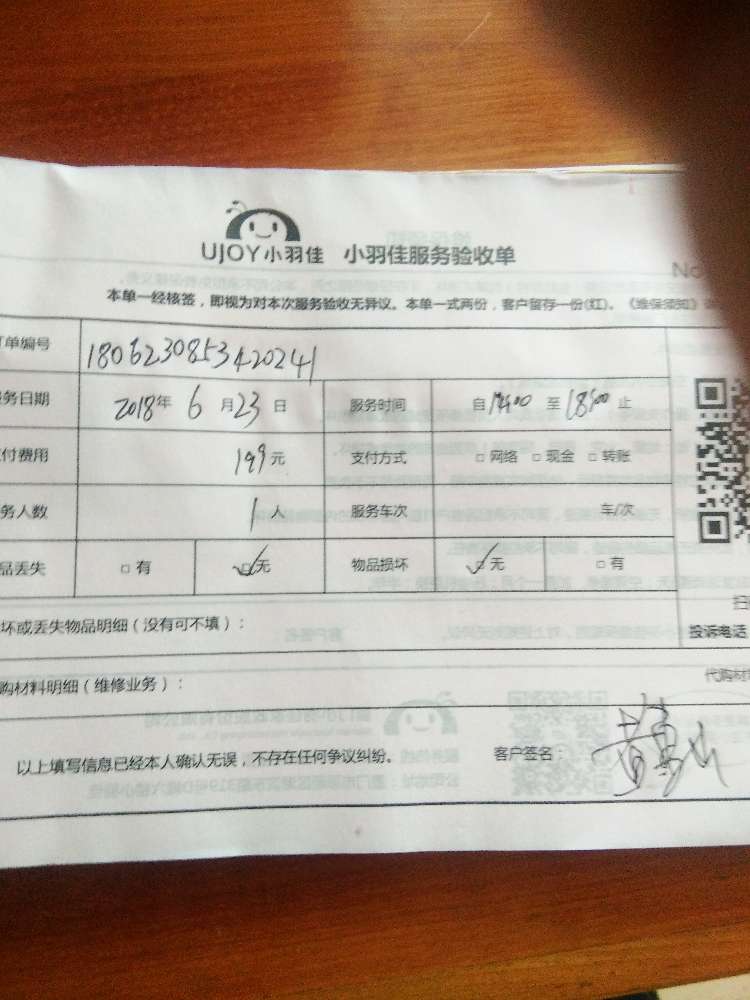 UJOY小羽佳 小羽佳服务验收单
No
本单一经核签，即视为对本次服务验收无异议。本单一式两份，客户留存一份(红)。《维保须知》
单编号 1806230853420241
务日期 2018年 6 月 23 日 服务时间 自 14:00 至 18:00 止
付费用 199元 支付方式 □ 网络 □ 现金 □ 转账
务人数 1 人 服务车次 车/次
品丢失 □ 有 ☑无 物品损坏 ☑无 □ 有
坏或丢失物品明细（没有可不填）：
投诉电话
购材料明细（维修业务）：
代购材
以上填写信息已经本人确认无误，不存在任何争议纠纷。 客户签名：